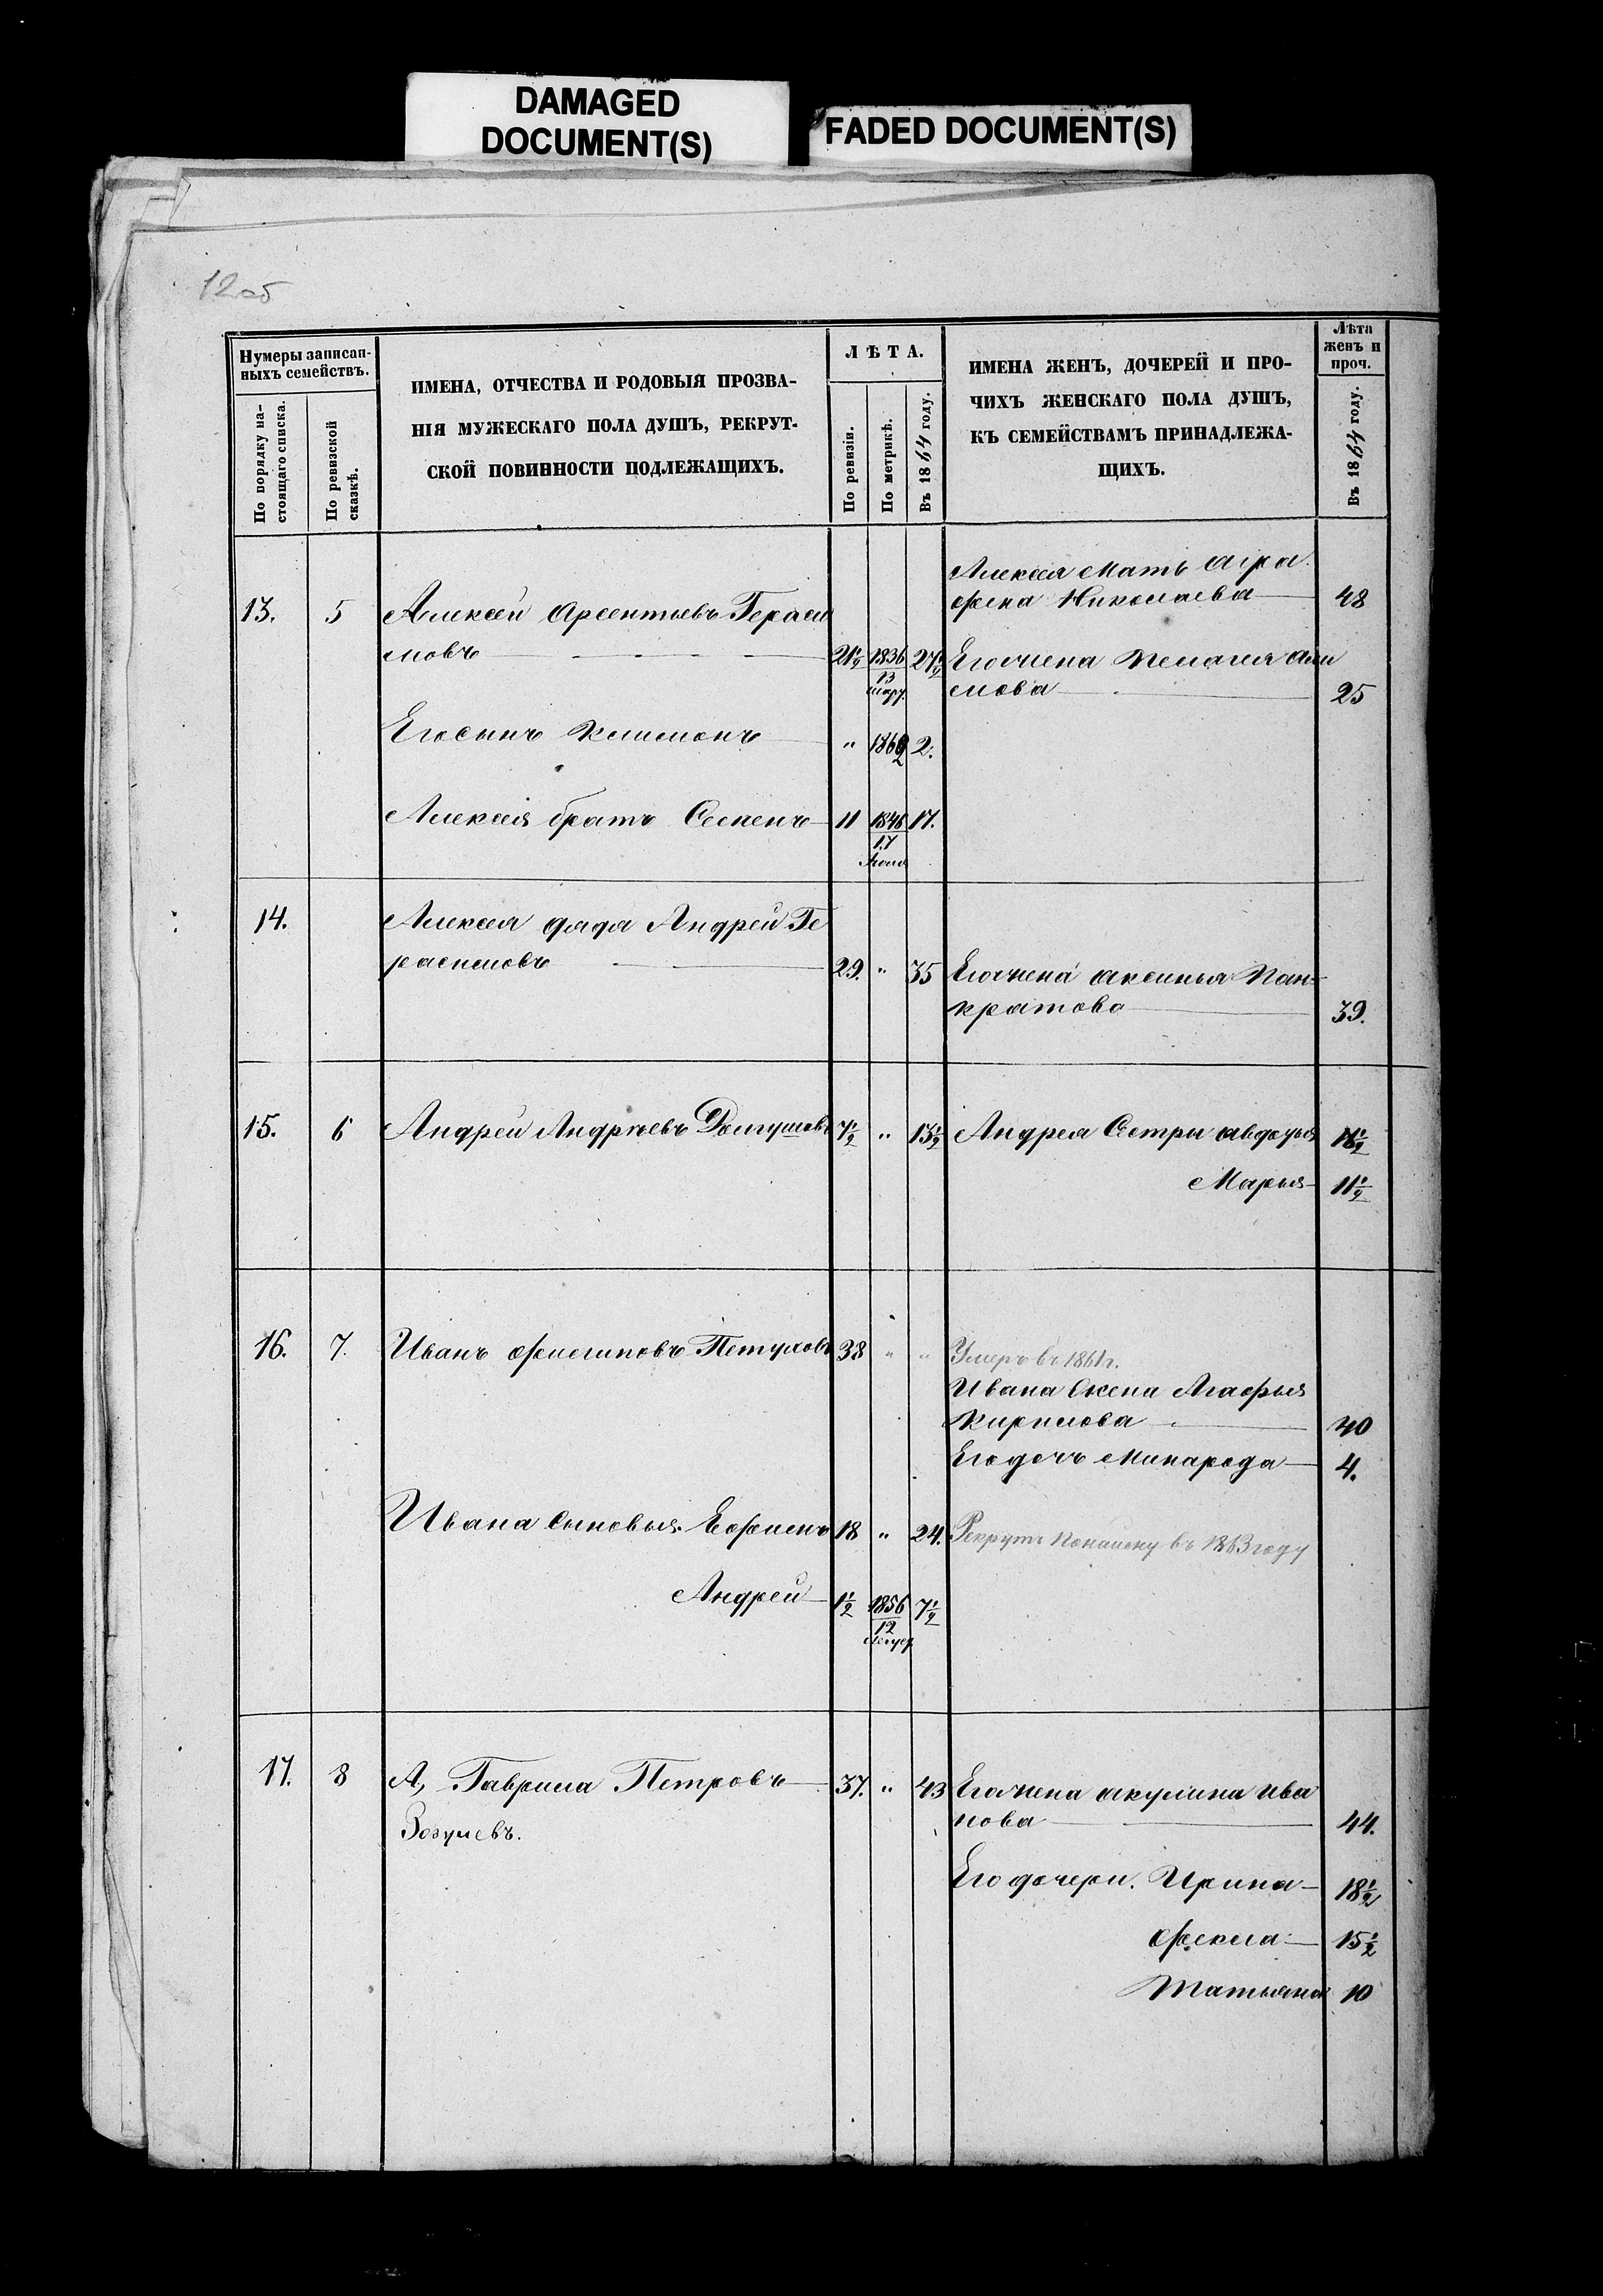 DAMAGED
DOCUMENT(S)
FADED DOCUMENT(S)
12об
Нумеры записан-
ныхъ семействъ.
По порядку на-
стоящаго списка.
По ревизской
сказкѣ.
ИМЕНА, ОТЧЕСТВА И РОДОВЫЯ ПРОЗВА-
НІЯ МУЖЕСКАГО ПОЛА ДУШЪ, РЕКРУТ-
СКОЙ ПОВИННОСТИ ПОДЛЕЖАЩИХЪ.
ЛѢТА.
По ревизіи.
По метрикѣ.
Въ 1864 году.
ИМЕНА ЖЕНЪ, ДОЧЕРЕЙ И ПРО-
ЧИХЪ ЖЕНСКАГО ПОЛА ДУШЪ,
КЪ СЕМЕЙСТВАМЪ ПРИНАДЛЕЖА-
ЩИХЪ.
Лѣта
женъ и
проч.
Въ 1864 году.
Алексѣя Мать Агра
фена Николаева 48
13. 5 Алексѣй Арсентьевъ Гераси
мовъ 21½ 1836 13 мару. 27½ Его жена Пелагея
мова 25
Его сынъ Климонъ " 1862 2.
Алексѣя братъ Семенъ 11 1846 17 Іюля 17.
14. Алексѣя дядя Андрей Ге
расимовъ 29. " 35 Его жена Аксинья Пан-
кратова 39.
15. 6 Андрей Андрѣевъ Долгушевъ 7½ " 13½ Андрея Сестры Авдотья
Марья 11½
16. 7. Иванъ Филиповъ Петуховъ 38 " " Умеръ въ 1861 г.
Ивана жена Агафья
Кирилова 40
Его дочь Минарода 4.
Ивана сыновья. Ефимъ 18 " 24. Рекрутъ въ 1863 году
Андрей 1½ 1856 12 7½
17. 8 А, Гаврила Петровъ 37. " 43 Его жена Акулина Ива
Зогулевъ.
нова 44.
Его дочери. Ирина 18½
Фекла 15½
Татьяна 10